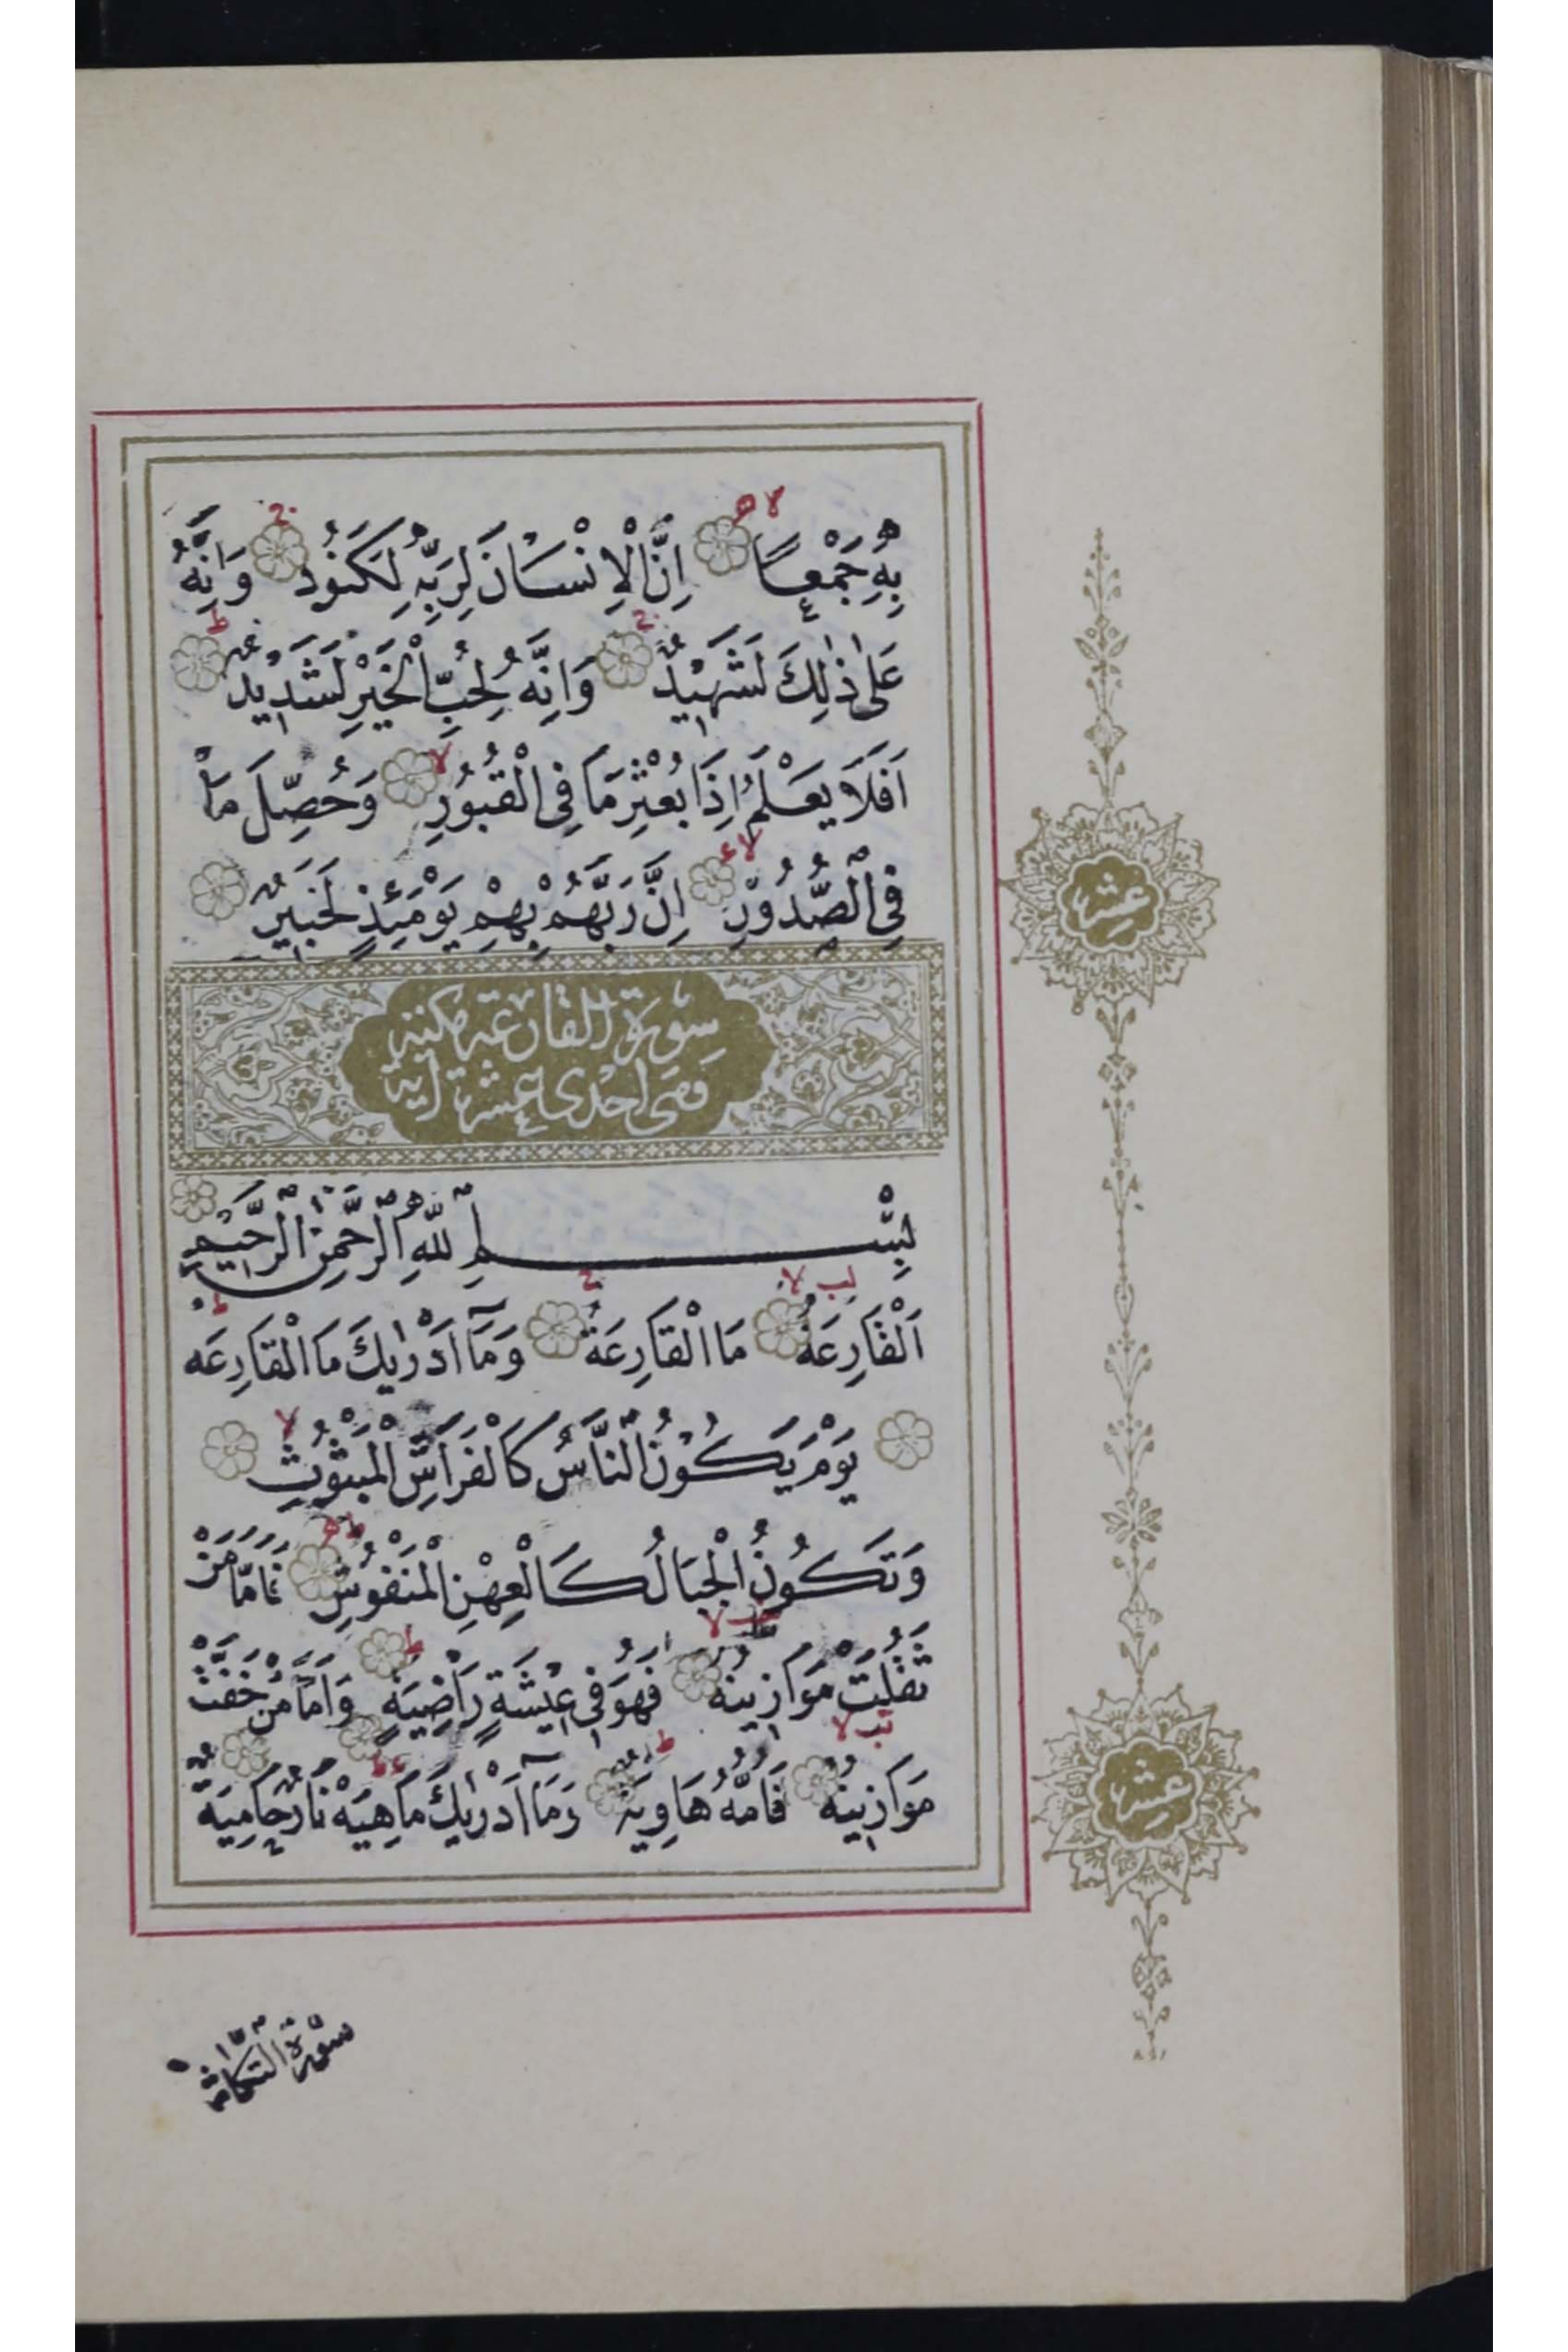 بِهِ جَمْعًا اِنَّ الْاِنْسَانَ لِرَبِّهِ لَكَنُودٌ وَاِنَّهُ
عَلٰى ذٰلِكَ لَشَهِيْدٌ وَاِنَّهُ لِحُبِّ الْخَيْرِ لَشَدِيْدٌ
اَفَلَا يَعْلَمُ اِذَا بُعْثِرَ مَا فِى الْقُبُوْرِ وَحُصِّلَ مَا
فِى الصُّدُوْرِ اِنَّ رَبَّهُمْ بِهِمْ يَوْمَئِذٍ لَخَبِيْرٌ
سورة القارعة مكية
وهى احدى عشرة اية
بِسْمِ اللّٰهِ الرَّحْمٰنِ الرَّحِيْمِ
اَلْقَارِعَةُ مَا الْقَارِعَةُ وَمَآ اَدْرٰيكَ مَا الْقَارِعَه
يَوْمَ يَكُوْنُ النَّاسُ كَالْفَرَاشِ الْمَبْثُوْثِ
وَتَكُوْنُ الْجِبَالُ كَالْعِهْنِ الْمَنْفُوْشِ فَاَمَّا مَنْ
ثَقُلَتْ مَوَازِينُهُ فَهُوَ فِى عِيْشَةٍ رَاضِيَةٍ وَاَمَّا مَنْ خَفَّتْ
مَوَازِينُهُ فَاُمُّهُ هَاوِيَةٌ وَمَآ اَدْرٰيكَ مَاهِيَهْ نَارٌ حَامِيَةٌ
عشر
عشر
سورة التكاثر